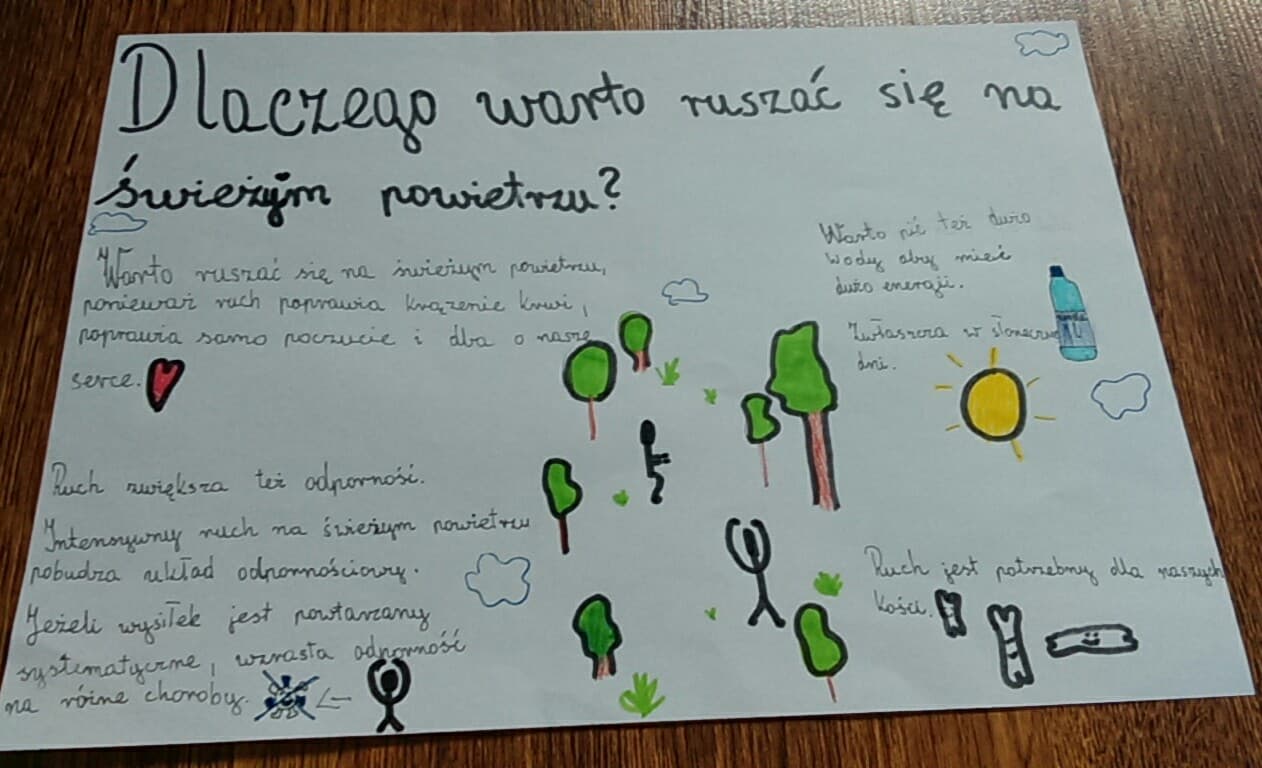 Dlaczego warto ruszać się na
świeżym powietrzu?
Warto ruszać się na świeżym powietrzu,
ponieważ ruch poprawia krążenie krwi,
poprawia samo poczucie i dba o nasze
serce.
Ruch zwiększa też odporność.
Intensywny ruch na świeżym powietrzu
pobudza układ odpornościowy.
Jeżeli wysiłek jest powtarzany
systematyczne, wzrasta odporność
na różne choroby.
Warto pić też dużo
wody aby mieć
dużo energii.
Zwłaszcza w słoneczne
dni.
Ruch jest potrzebny dla naszych
kości.